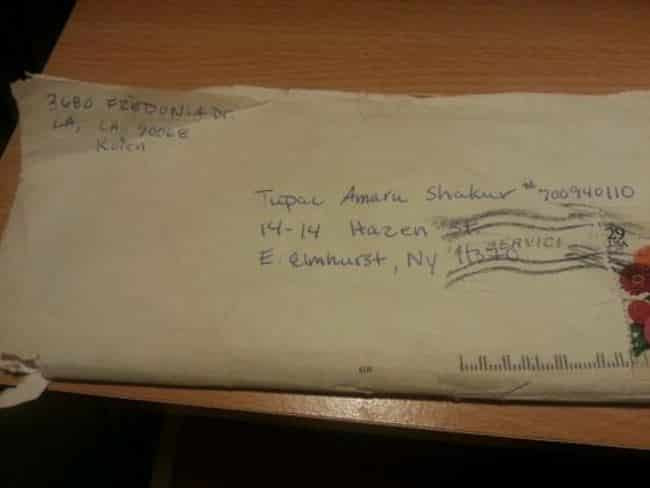 3680 FREDONIA Dr.
LA, CA, 90068
Tupac Amaru Shakur #700940110
14-14 Hazen St.
E. elmhurst, Ny 11370
SERVICE
29